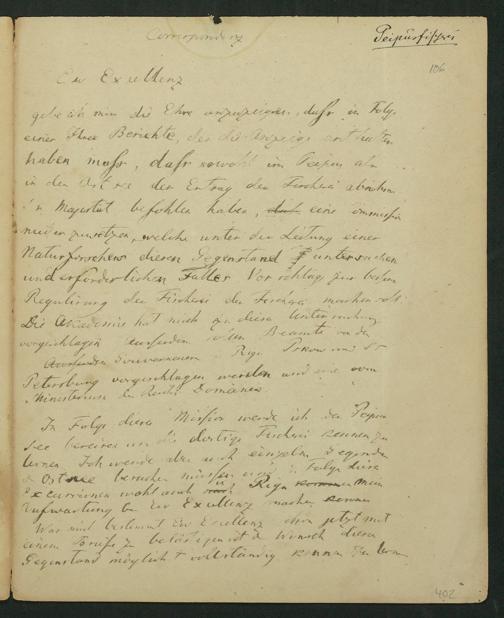 Correspondenz
Peipusfischerei
106
Ew Excellenz
gebe ich mir die Ehre anzuzeigen, dass in Folge
einer Ihrer Berichte, der die Anzeige enthalten
haben muss, dass sowohl im Peipus als
in der Ostsee der Ertrag der Fischerei abnehme
Majestät befohlen haben, eine Commission
niederzusetzen, welche unter der Leitung eines
Naturforschers diesen Gegenstand untersuchen
und erforderlichen Falles Vorschläge zur bessern
Regulirung der Fischerei machen soll
Die Akademie hat mich zu dieser Untersuchung
vorgeschlagen Beamte von den
Gouvernements Riga Pskow und St
Petersburg vorgeschlagen werden und vom
Ministerium der Reichs Domänen
In Folge dieser Mission werde ich den Peipus
See bereisen um die dortige Fischerei kennen zu
lernen. Ich werde aber auch einzelne Gegenden
der Ostsee besuchen müssen und in Folge dieser
Excursionen wohl auch Riga mein
Aufwartung bei Ew Excellenz machen
Was mich bestimmt Ew Excellenz schon jetzt mit
einem Briefe zu belästigen ist der Wunsch diesen
Gegenstand möglichst vollständig kennen zu lernen
402